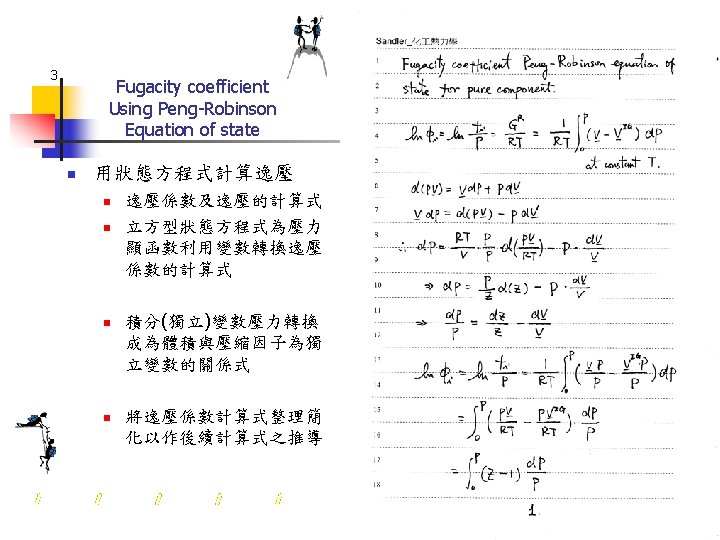 3
Fugacity coefficient
Using Peng-Robinson
Equation of state
用狀態方程式計算逸壓
逸壓係數及逸壓的計算式
立方型狀態方程式為壓力
顯函數利用變數轉換逸壓
係數的計算式
積分(獨立)變數壓力轉換
成為體積與壓縮因子為獨
立變數的關係式
將逸壓係數計算式整理簡
化以作後續計算式之推導
Sandler_化工熱力學
1 Fugacity coefficient Peng-Robinson equation of
2 state for pure component.
3
4 ln φi = ln fi/P = G^R/RT = 1/RT ∫0^P (V - V^IG) dP
5 at constant T.
6 d(PV) = V dP + P dV
7 V dP = d(PV) - P dV
8 ∴ dP = RT/V · P/P d(PV/RT) - P · dV/V
9
10 ⇒ dP = P/Z d(Z) - P · dV/V
11
12 ⇒ dP/P = dZ/Z - dV/V
13 ln φi = ln fi/P = 1/RT ∫0^P (VP/P - V^IG P/P) dP
14
15 = ∫0^P (PV/RT - PV^IG/RT) dP/P
16
17 = ∫0^P (Z-1) dP/P
18
1.